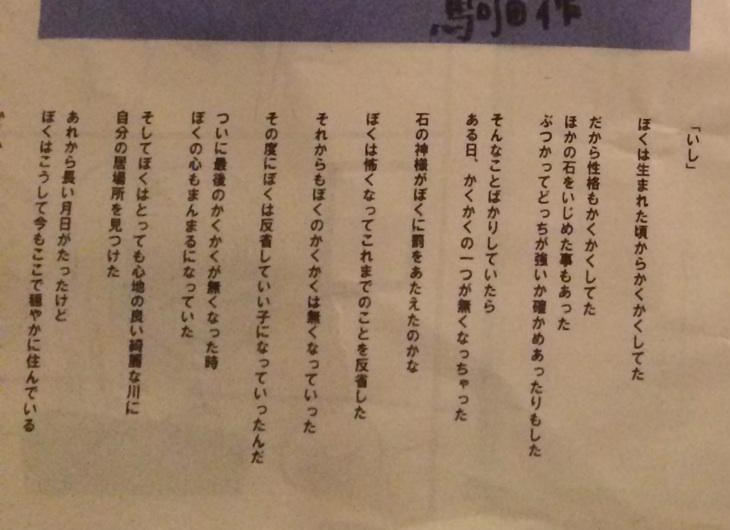 駒田作
「いし」
ぼくは生まれた頃からかくかくしてた
だから性格もかくかくしてた
ほかの石をいじめた事もあった
ぶつかってどっちが強いか確かめあったりもした
そんなことばかりしていたら
ある日、かくかくの一つが無くなっちゃった
石の神様がぼくに罰をあたえたのかな
ぼくは怖くなってこれまでのことを反省した
それからもぼくのかくかくは無くなっていった
その度にぼくは反省していい子になっていったんだ
ついに最後のかくかくが無くなった時
ぼくの心もまんまるになっていた
そしてぼくはとっても心地の良い綺麗な川に
自分の居場所を見つけた
あれから長い月日がたったけど
ぼくはこうして今もここで穏やかに住んでいる